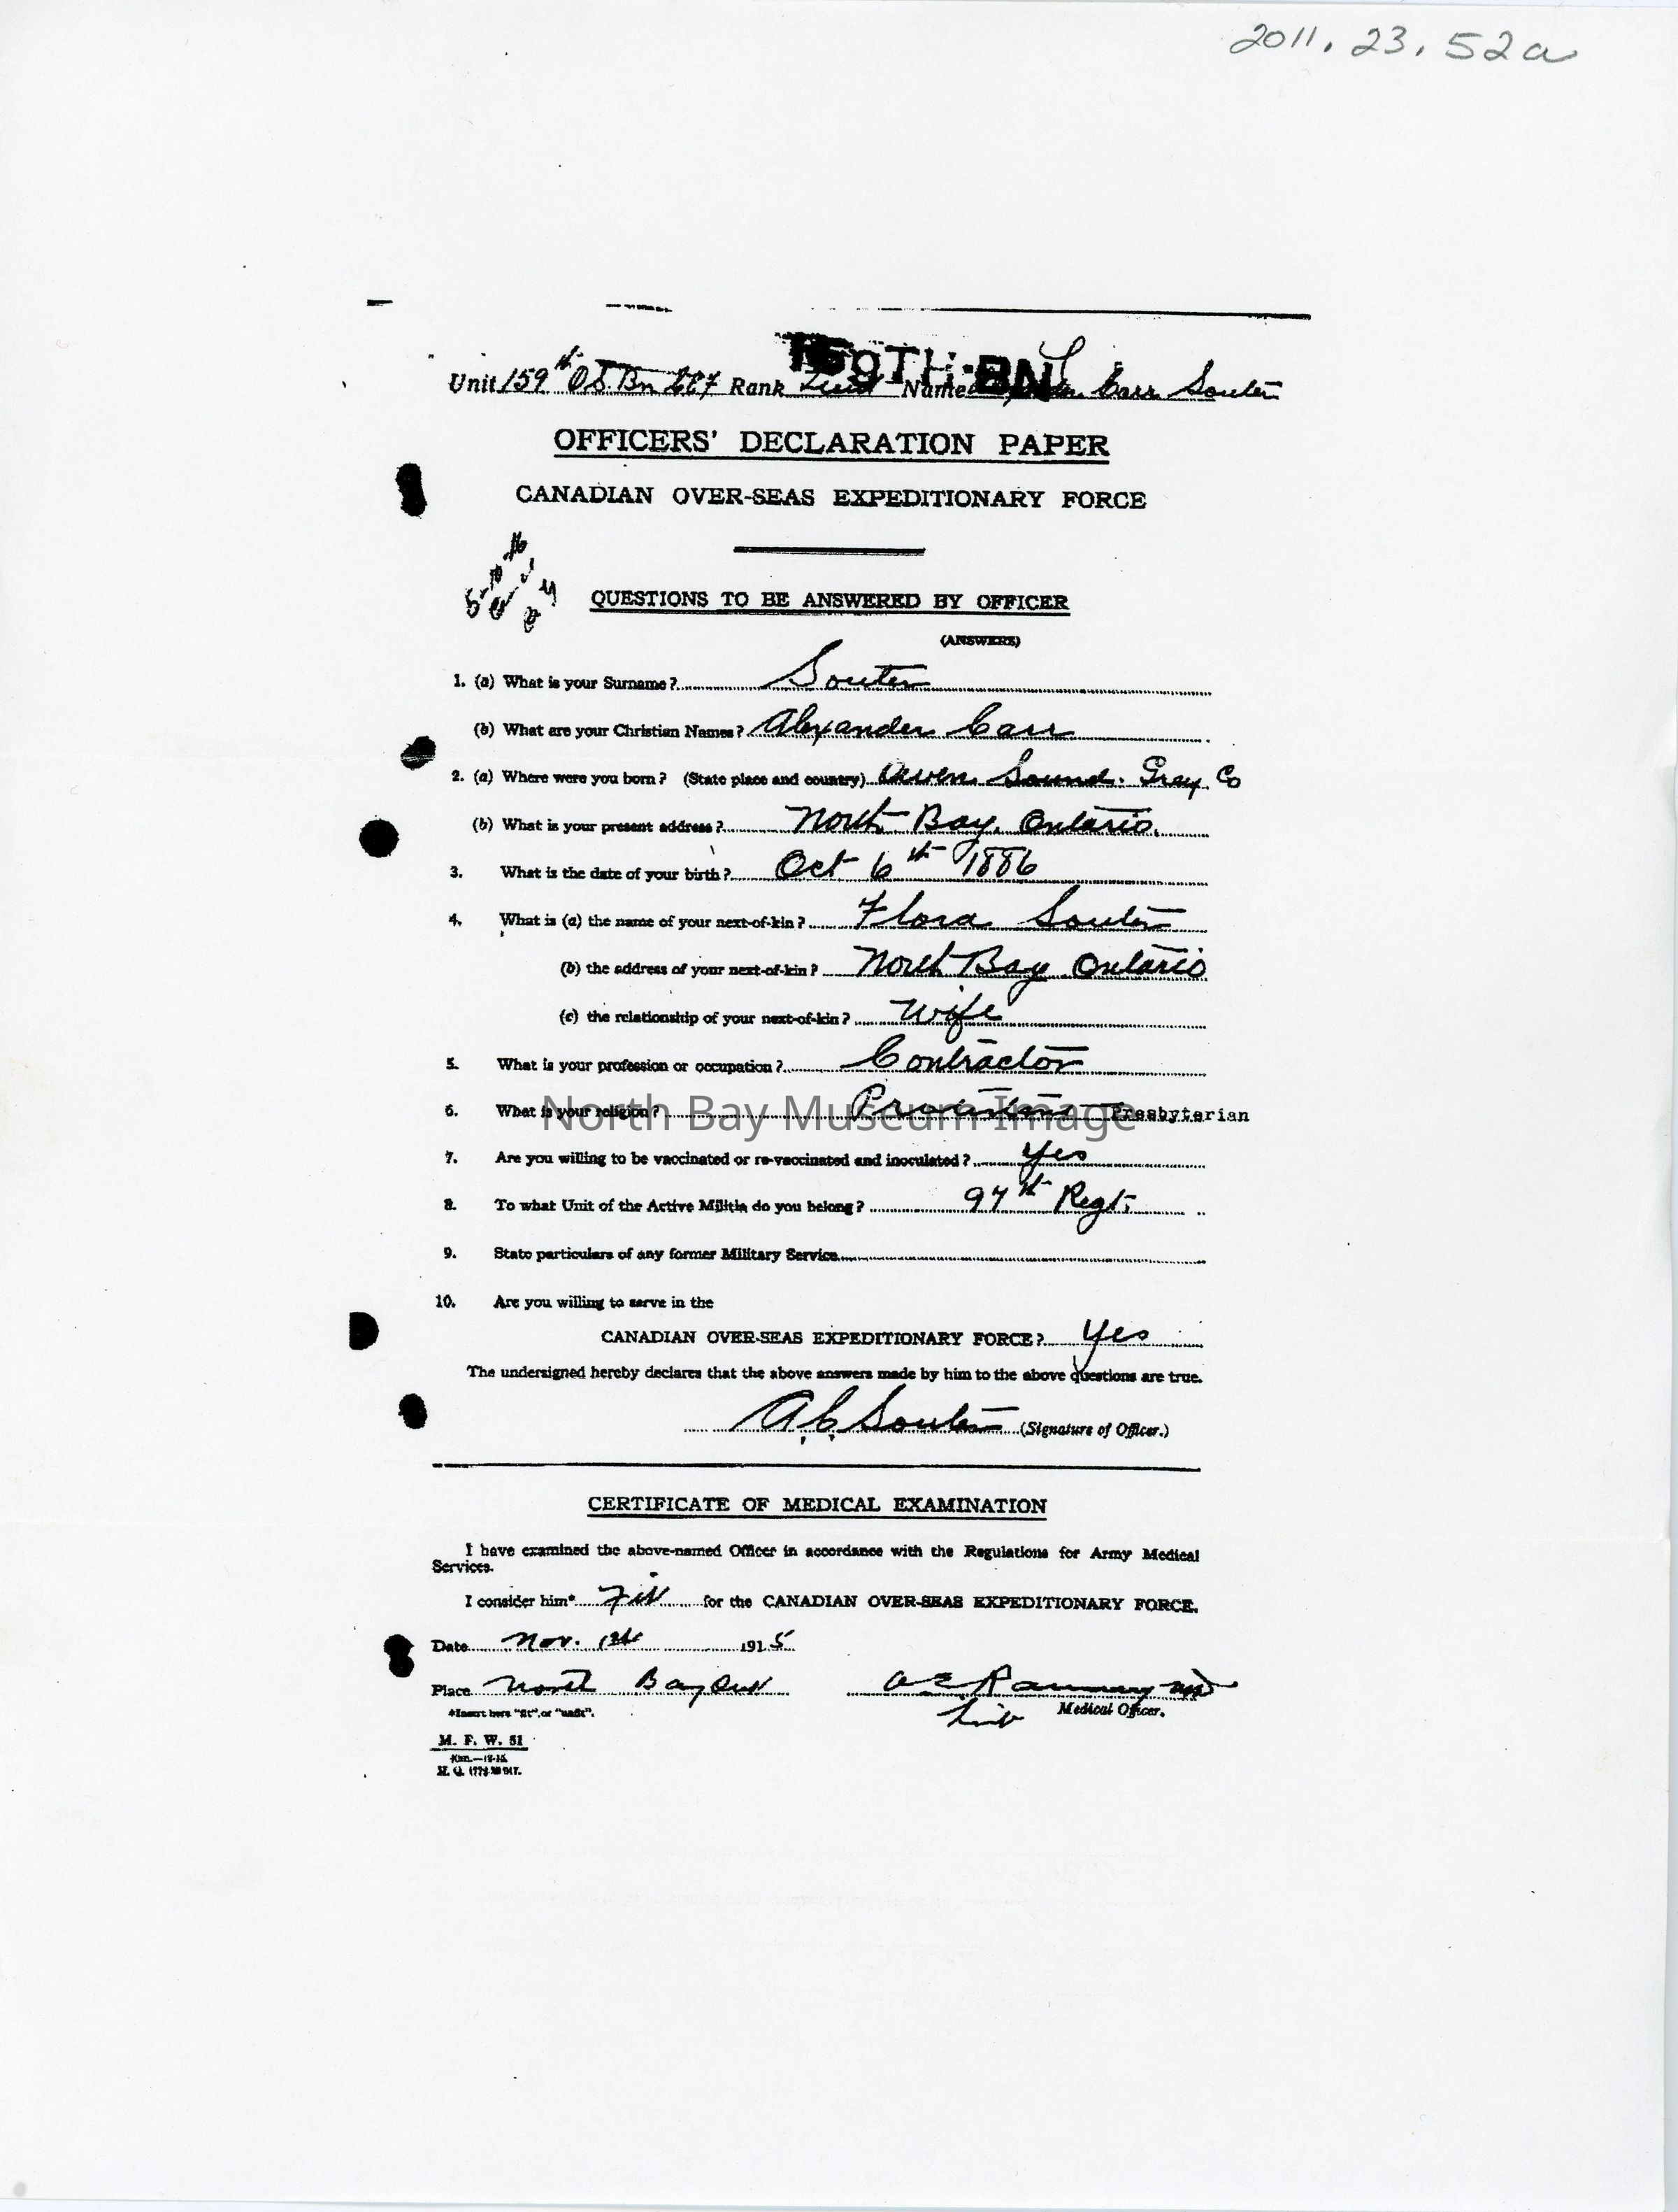 2011.23.52a
159TH·BN
Unit 159th O.S. Bn CEF Rank Lieut Name Carr Souter
OFFICERS' DECLARATION PAPER
CANADIAN OVER-SEAS EXPEDITIONARY FORCE
QUESTIONS TO BE ANSWERED BY OFFICER
(ANSWERS)
1. (a) What is your Surname? Souter
(b) What are your Christian Names? Alexander Carr
2. (a) Where were you born? (State place and country) Owen Sound. Grey Co
(b) What is your present address? North Bay, Ontario.
3. What is the date of your birth? Oct 6th 1886
4. What is (a) the name of your next-of-kin? Flora Souter
(b) the address of your next-of-kin? North Bay Ontario
(c) the relationship of your next-of-kin? Wife
5. What is your profession or occupation? Contractor
6. What is your religion? Presbyterian
North Bay Museum Image
7. Are you willing to be vaccinated or re-vaccinated and inoculated? Yes
8. To what Unit of the Active Militia do you belong? 97th Regt.
9. State particulars of any former Military Service
10. Are you willing to serve in the
CANADIAN OVER-SEAS EXPEDITIONARY FORCE? Yes
The undersigned hereby declares that the above answers made by him to the above questions are true.
A.C. Souter (Signature of Officer.)
CERTIFICATE OF MEDICAL EXAMINATION
I have examined the above-named Officer in accordance with the Regulations for Army Medical
Services.
I consider him* Fit for the CANADIAN OVER-SEAS EXPEDITIONARY FORCE.
Date Nov. 1st 1915
Place North Bay Ont
*Insert here "fit" or "unfit".
Medical Officer.
M. F. W. 51